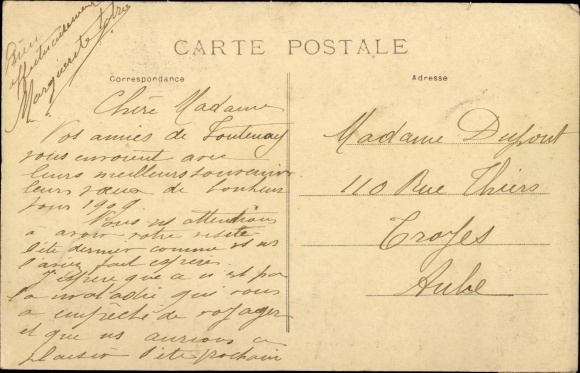 CARTE POSTALE
Correspondance
Adresse
Bien
affectueusement
Marguerite
Chère Madame
Vos amies de Fontenay
vous envoient avec
leurs meilleurs souvenirs
leurs vœux de bonheur
pour 1909.
Nous ns attentions
à avoir votre visite
l'été dernier comme vs ns
l'aviez fait espérer.
J'espère que ce n'est pas
la maladie qui vous
a empêché de voyager
et que ns aurions ce
plaisir l'été prochain
Madame Dupont
110 Rue Thiers
Troyes
Aube